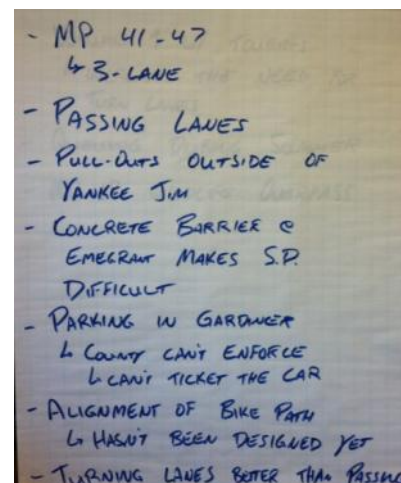 - MP 41-47
↳ 3-LANE
- PASSING LANES
- PULL-OUTS OUTSIDE OF
YANKEE JIM
- CONCRETE BARRIER @
EMEGRANT MAKES S.D.
DIFFICULT
- PARKING IN GARDINER
↳ COUNTY CAN'T ENFORCE
↳ CAN'T TICKET THE CAR
- ALIGNMENT OF BIKE PATH
↳ HASN'T BEEN DESIGNED YET
- TURNING LANES BETTER THAN PASSING